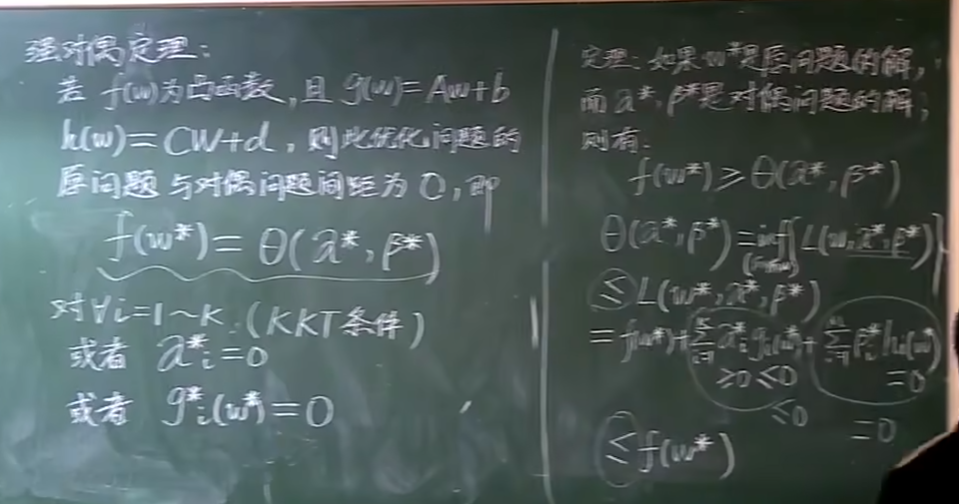 强对偶定理:
若 f(w)为凸函数,且 g(w)=Aw+b
h(w)=CW+d,则此优化问题的
原问题与对偶问题间距为0,即
f(w*)=θ(α*,β*)
对∀i=1~K.(KKT条件)
或者 α*ᵢ=0
或者 g*ᵢ(w*)=0
定理:如果w*是原问题的解,
而α*,β*是对偶问题的解,
则有:
f(w*)≥θ(α*,β*)
θ(α*,β*)=inf{L(w,α*,β*)}
≤L(w*,α*,β*)
=f(w*)+∑α*ᵢgᵢ(w*)+∑β*ᵢhᵢ(w*)
≥0 ≤0 =0
≤0 =0
≤f(w*)